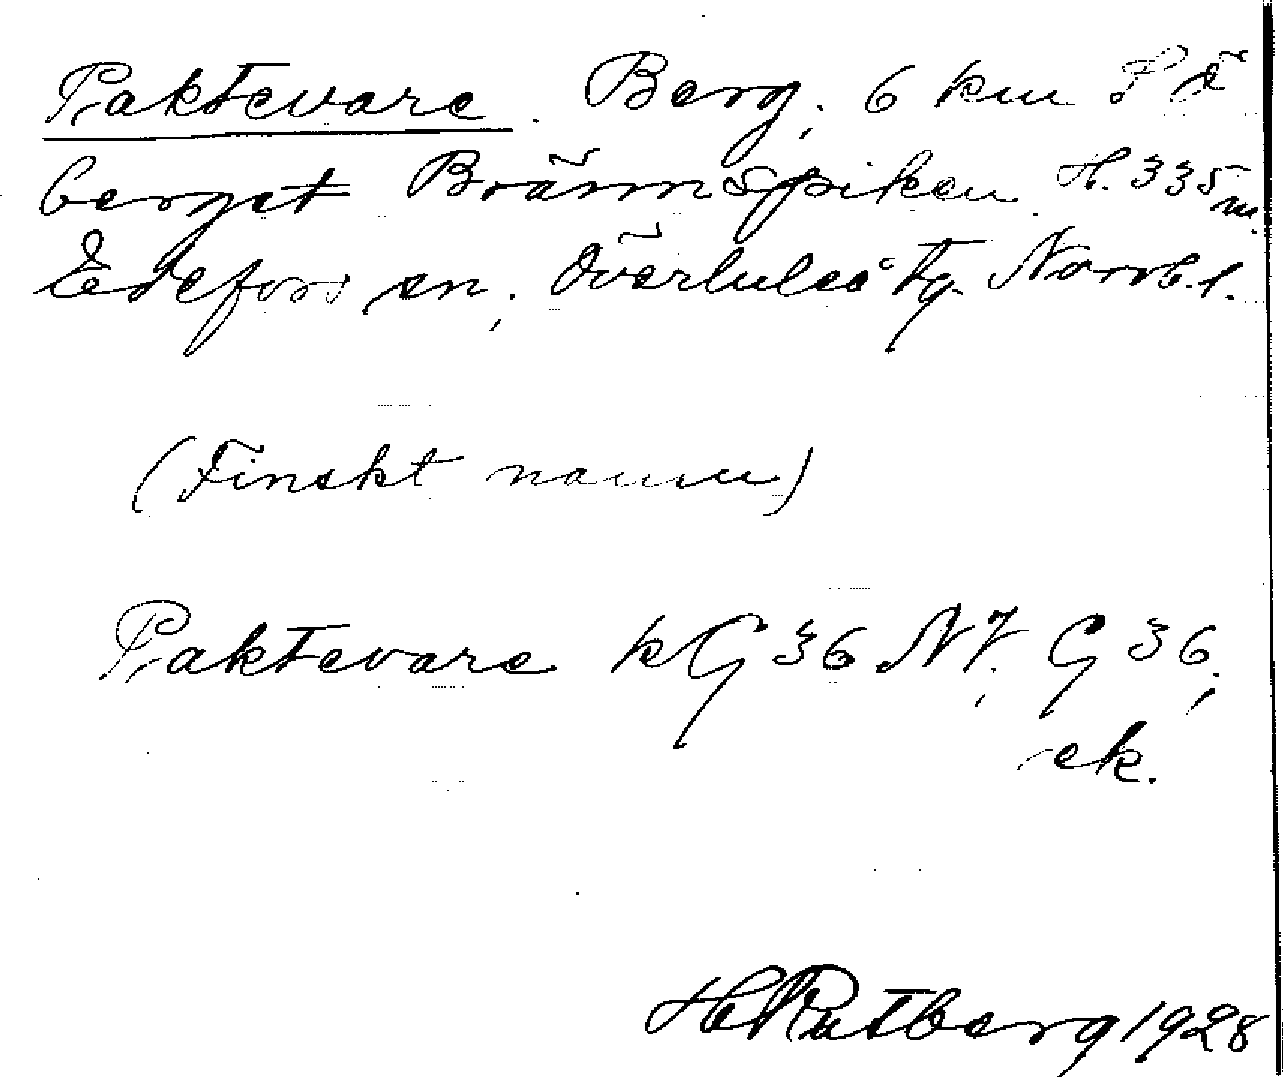 Paktevare. Berg, 6 km S Ö
berget Brännspiken. H. 335 m.
Edefors sn, Överluleå tg. Norrb. l.
(Finskt namn)
Paktevare kG 36 NV, G 36,
ek.
H Rutberg 1928